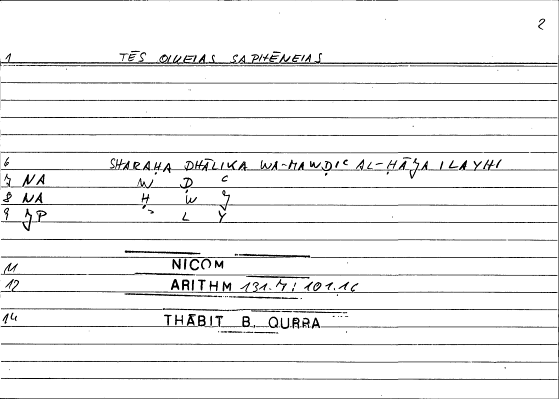 2
1 TĒS OIKEIAS SAPHĒNEIAS
6 SHARAḤA DHĀLIKA WA-MAWḌIʿ AL-ḤĀJA ILAYHI
7 NA W Ḍ ʿ
8 NA Ḥ W J
9 JP L Y
11 NICOM
12 ARITHM 131.7; 101.16
14 THĀBIT B. QURRA